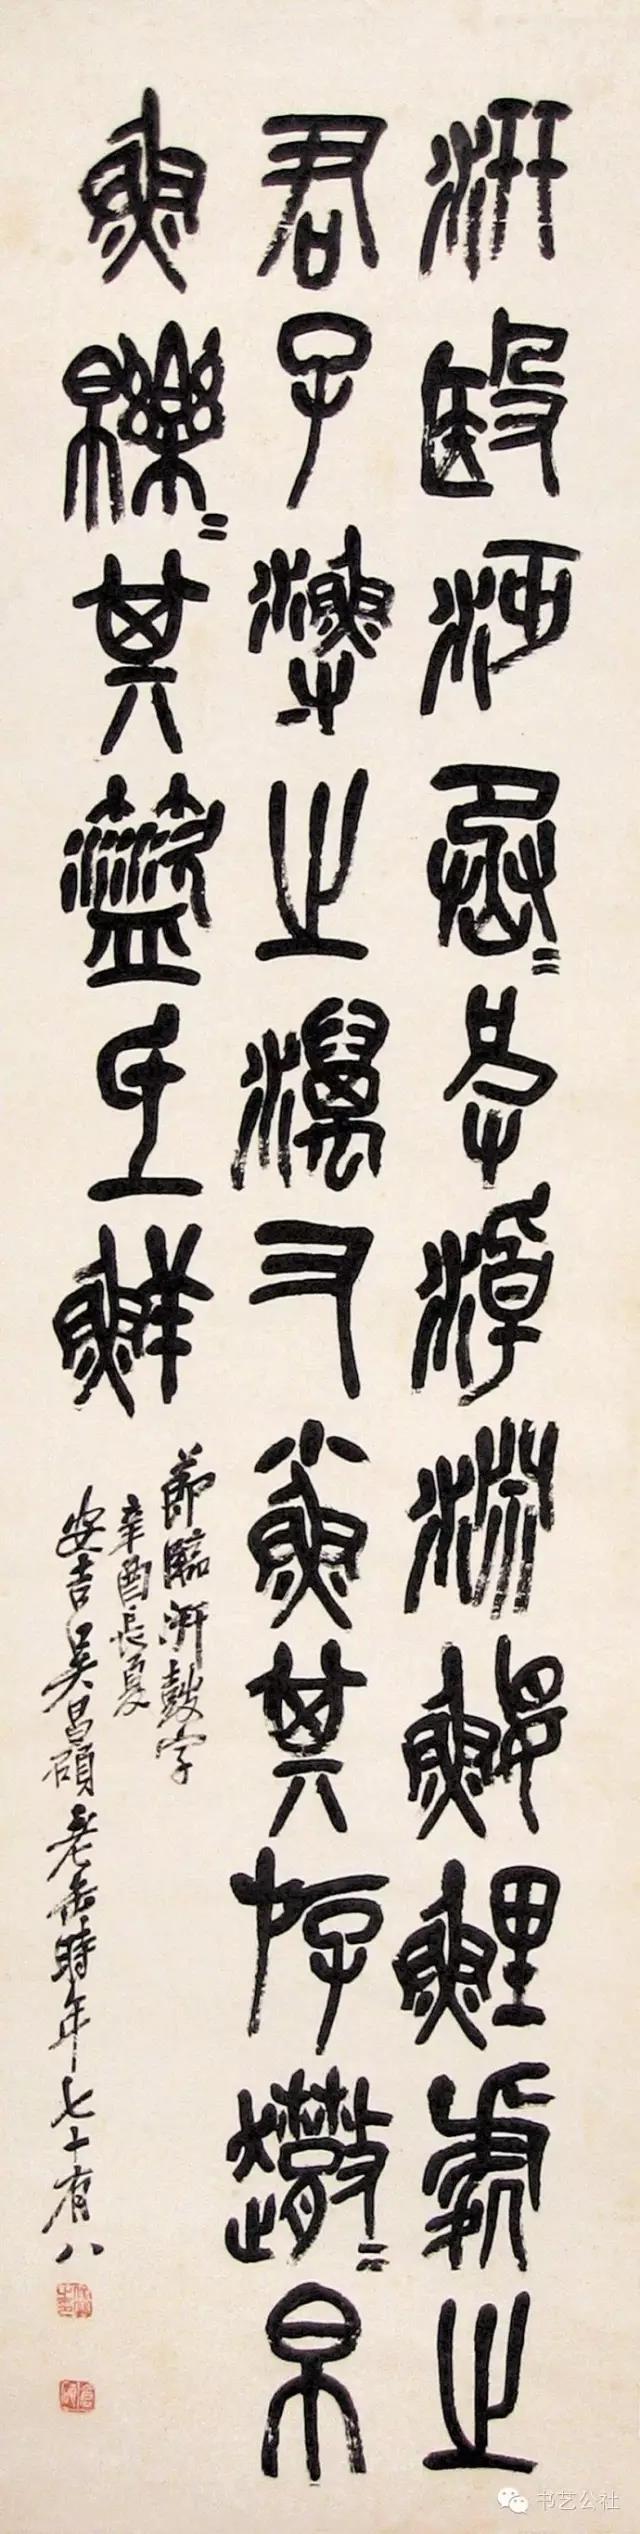 汧殹沔烝=皮淖淵鰋鯉處之
君子漁之濿又小魚其斿=帛
魚皪=其盜氐鮮
節臨汧鼓字
辛酉長夏
安吉吳昌碩老缶時年七十有八
书艺公社